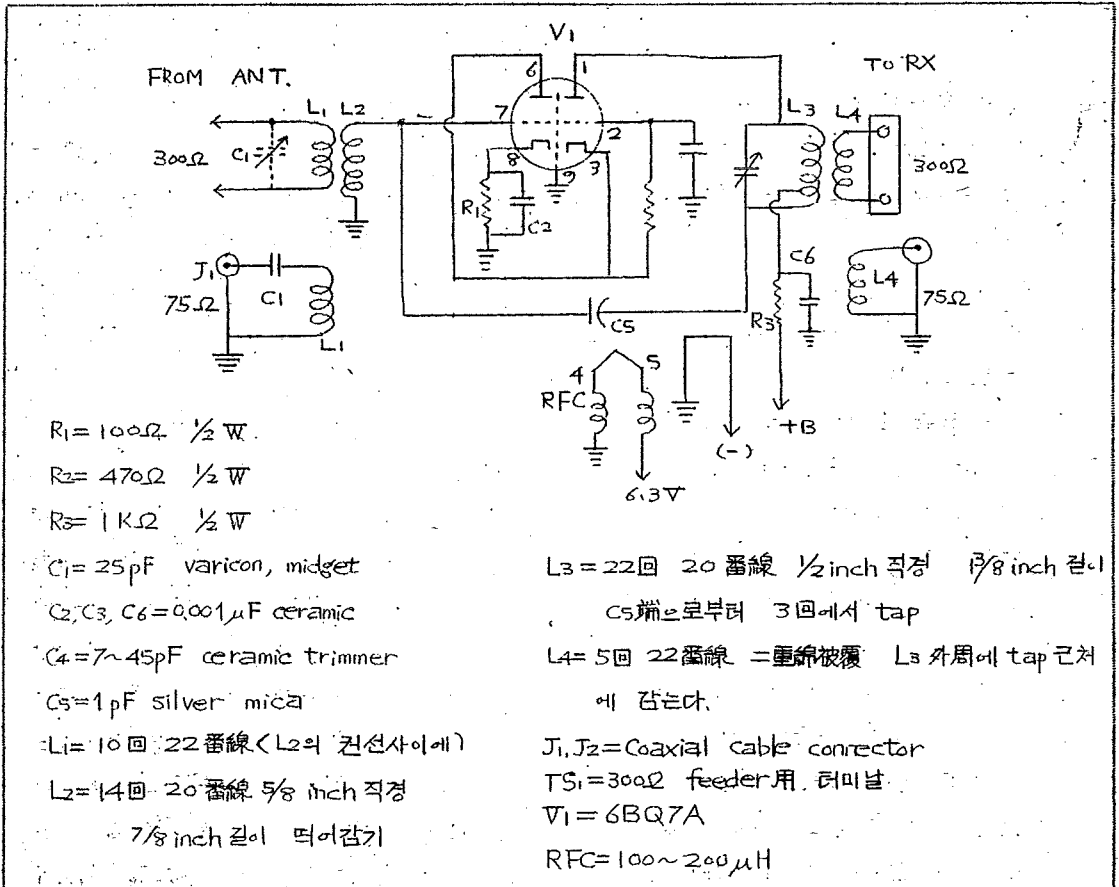 V1
FROM ANT.
TO RX
6
1
L1 L2
L3
L4
7
2
300Ω
C1
8
3
9
300Ω
R1
C2
J1
C1
C6
75Ω
L4
R3
75Ω
C5
L1
4
5
RFC
+B
(-)
6.3V
R1= 100Ω ½ W
R2= 470Ω ½ W
R3= 1KΩ ½ W
C1= 25pF varicon, midget
C2, C3, C6=0.001μF ceramic
C4=7~45pF ceramic trimmer
C5=1pF silver mica
L1= 10回 22番線(L2의 권선사이에)
L2=14回 20番線 5/8 inch 직경
7/8 inch 길이 띄어감기
L3=22回 20番線 ½inch 직경 1⅜inch 길이
C5端으로부터 3回에서 tap
L4= 5回 22番線 二重綿被覆 L3 外周에 tap 근처
에 감는다.
J1, J2=Coaxial cable connector
TS1=300Ω feeder用 터미날
V1=6BQ7A
RFC=100~200μH